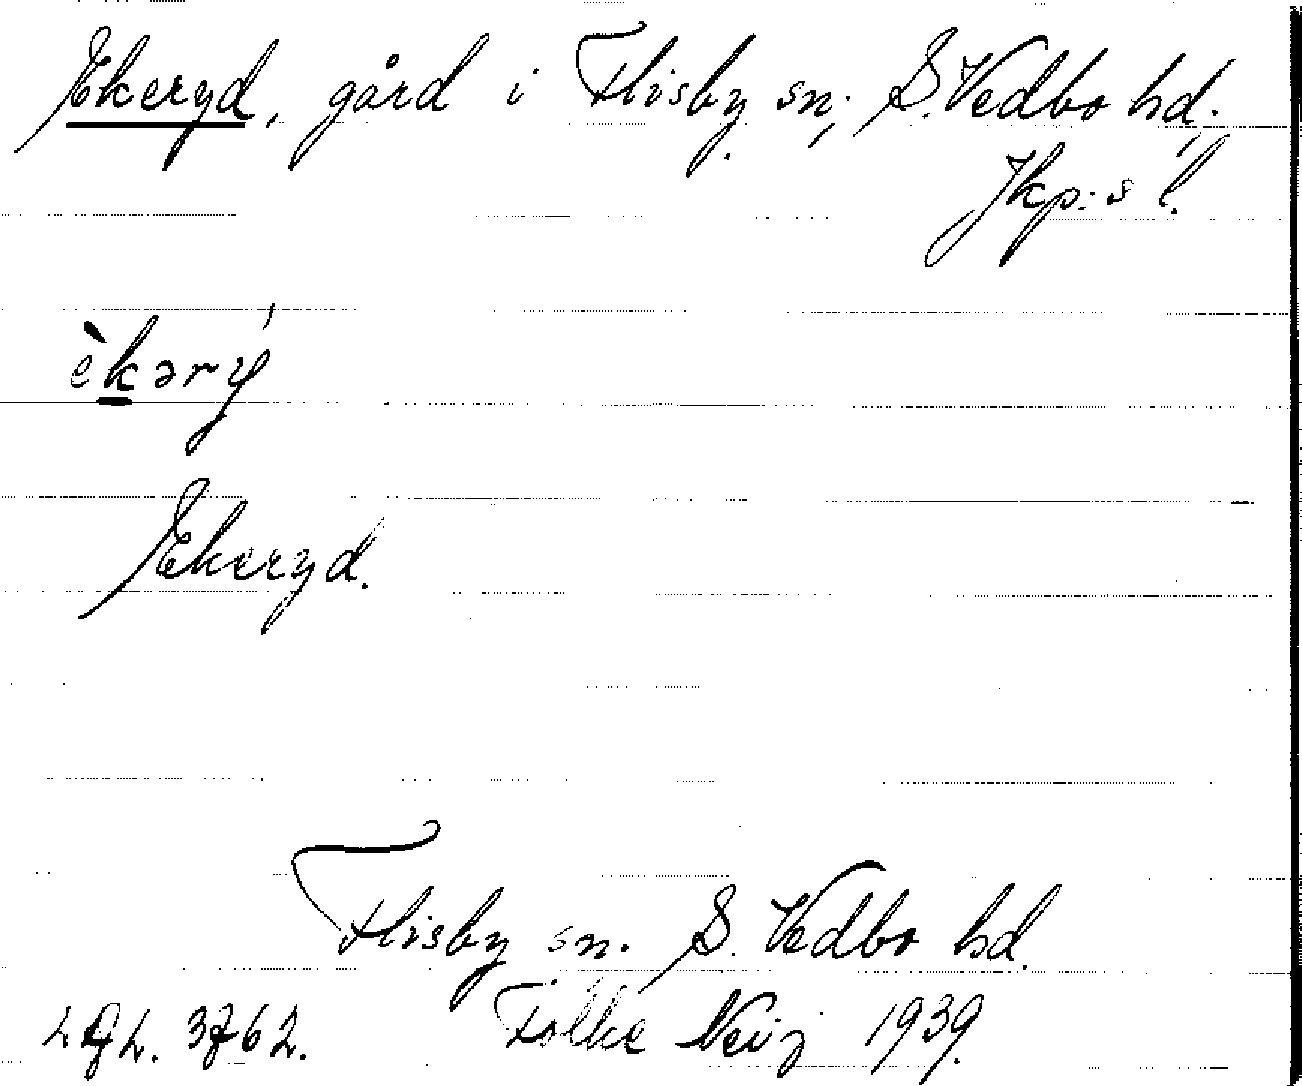 Ekeryd, gård i Flisby sn, S. Vedbo hd,
Jkp:s l.
èkərý
Ekeryd.
Flisby sn. S. Vedbo hd.
Folke Neij 1939.